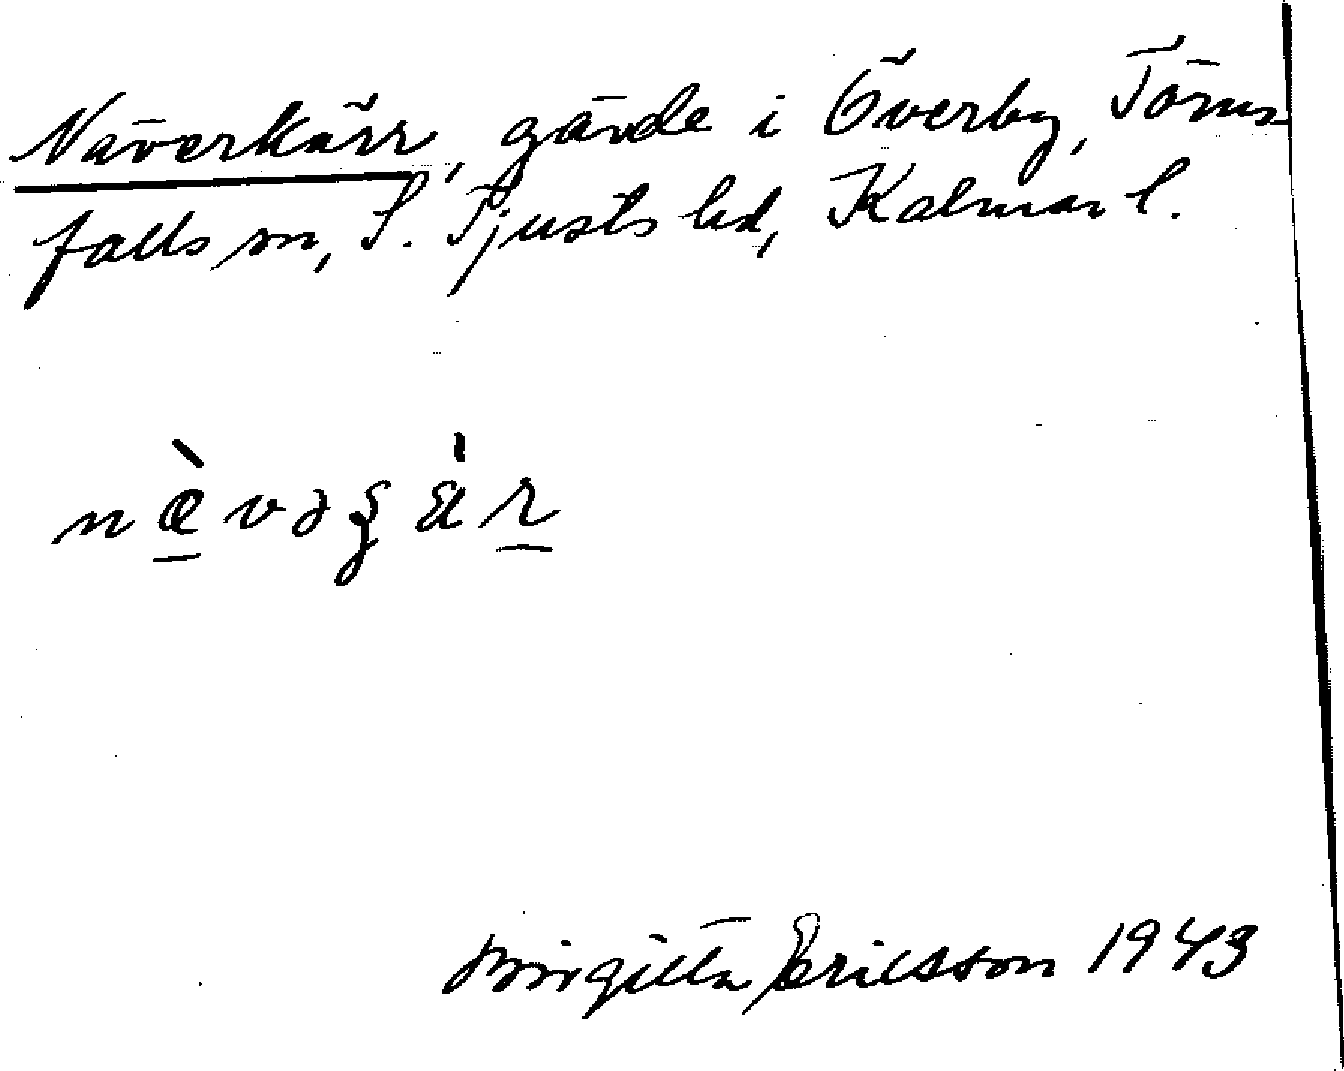 Näverkärr, gärde i Överby, Törns
falls sn, S. Tjusts hd, Kalmar l.
næ̀vəɕä̀r
Birgitta Ericsson 1943